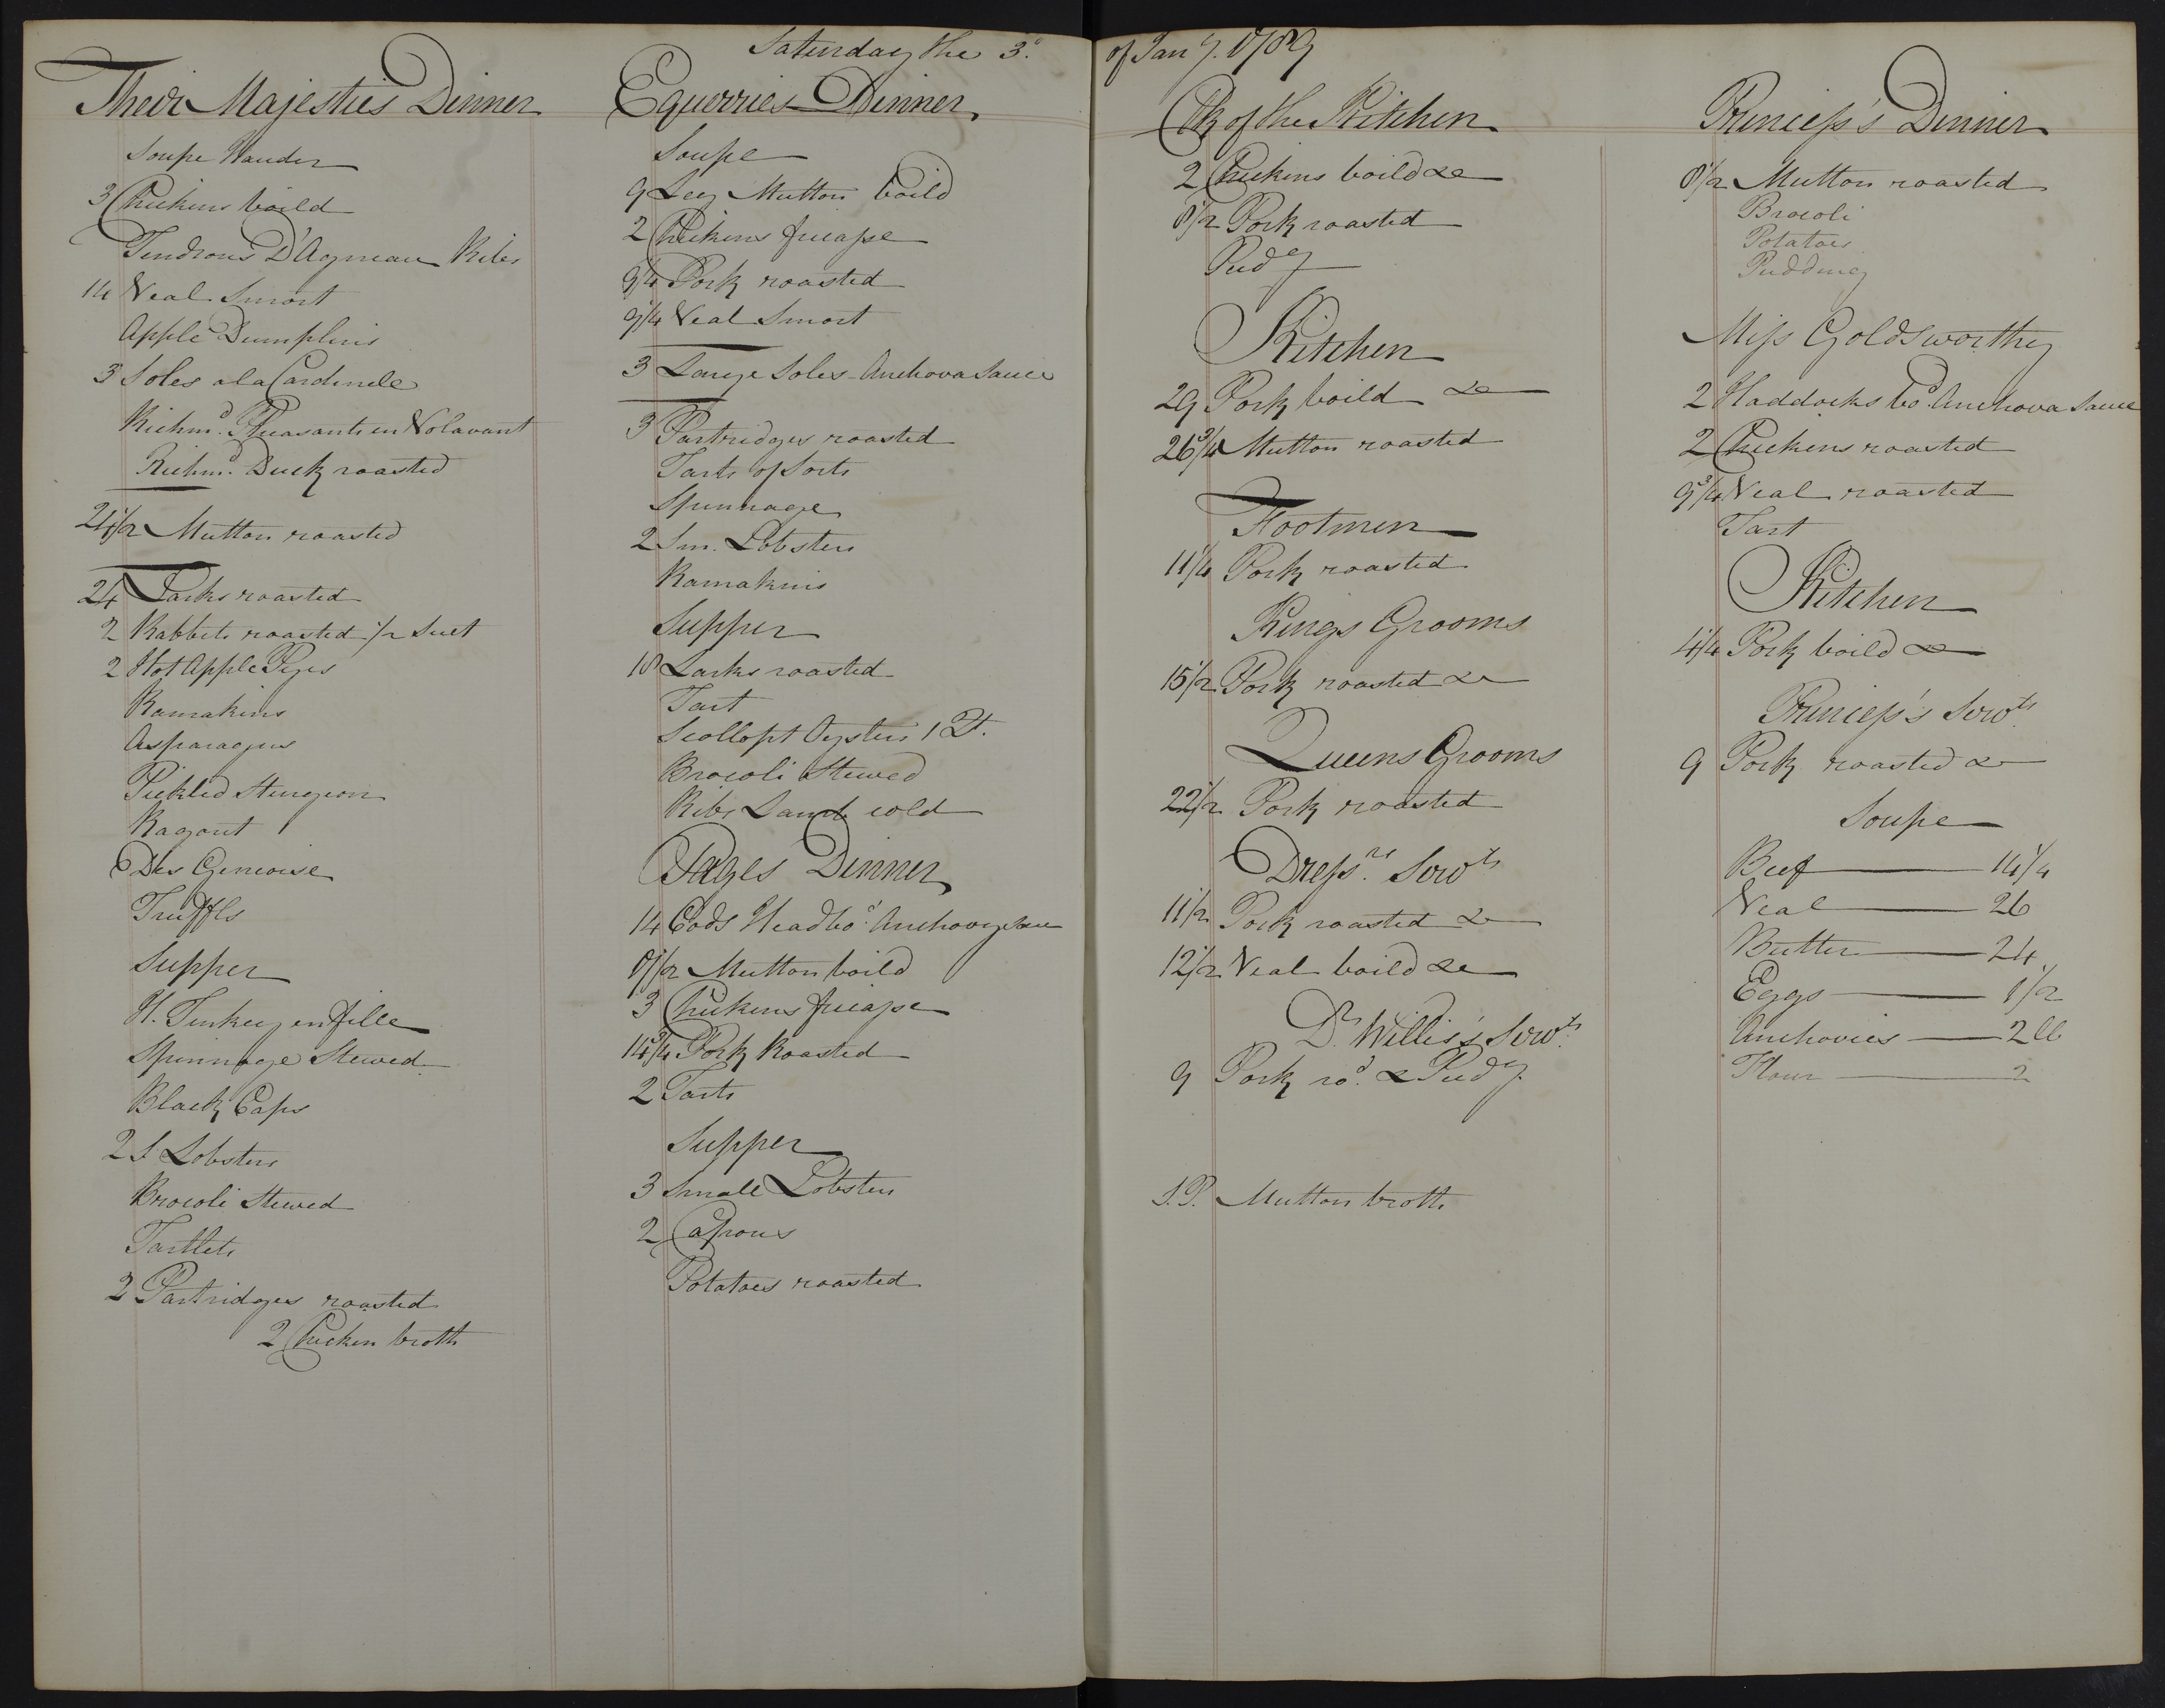 Saturday the 3d. of Jany. 1789
Their Majesties Dinner
Soupe
3 Chickens boild
Tendrons D'Agneau Ribs
14 Veal Smort
Apple Dumplins
3 Soles a la Cardinele
Richmd. Pheasants en Volavant
Richmd. Duck roasted
24 1/2 Mutton roasted
24 Larks roasted
2 Rabbets roasted 1/2 Suet
2 Hot Apple Pyes
Ramakins
Asparagus
Pickled Sturgeon
Ragout
Des Genoise
Truffls
Supper
H. Turkey en Jille
Spinnage Stewed
Black Caps
2 S Lobsters
Brocoli Stewed
Tartlets
2 Partridges roasted
2 Chicken broth
Equerries Dinner
Soupe
9 Leg Mutton boild
2 Chickens fricasse
9 1/4 Pork roasted
9 1/4 Veal Smort
3 Large Soles Anchova Sauce
3 Partridges roasted
Tarts of Sorts
Spinnage
2 Sm. Lobsters
Ramakins
Supper
18 Larks roasted
Tart
Scollopt Oysters 1 Qt.
Brocoli Stewed
Ribs Lamb cold
Pages Dinner
14 Cods Head bod. Anchovy Sauce
8 1/2 Mutton boild
3 Chickens fricasse
14 3/4 Pork Roasted
2 Tarts
Supper
3 Small Lobsters
2 Capons
Potatoes roasted
Clk of the Kitchen
2 Chickens boild &c
8 1/2 Pork roasted
Pudg
Kitchen
29 Pork boild &c
26 3/4 Mutton roasted
Footmen
11 1/4 Pork roasted
Kings Grooms
15 1/2 Pork roasted &c
Queens Grooms
22 1/2 Pork roasted
Dressrs. Servts
11 1/2 Pork roasted &c
12 1/2 Veal boild &c
Dr. Willis's Servts.
9 Pork rod. & Pudg
S.P. Mutton broth
Princess's Dinner
8 1/2 Mutton roasted
Brocoli
Potatoes
Pudding
Miss Goldsworthy
2 Haddocks bod. Anchova Sauce
2 Chickens roasted
9 3/4 Veal roasted
Tart
Kitchen
4 1/4 Pork boild &c
Princess's Servts.
9 Pork roasted &c
Soupe
Beef 14 1/4
Veal 26
Butter 24
Eggs 1/2
Anchovies 2 ll
Flour 2